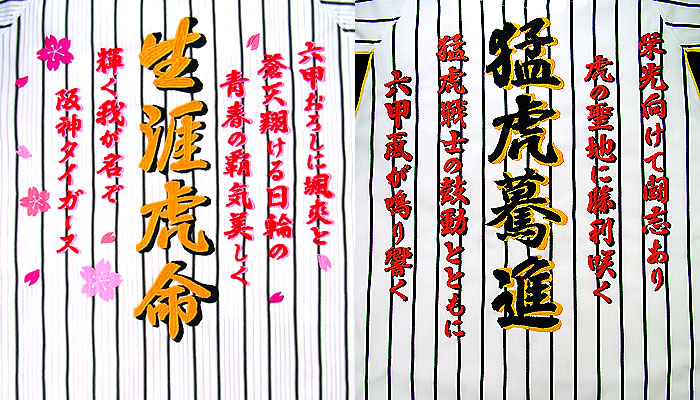 六甲おろしに颯爽と
蒼天翔ける日輪の
青春の覇気美しく
生涯虎命
輝く我が名ぞ
阪神タイガース
栄光向けて闘志あり
虎の聖地に勝利咲く
猛虎驀進
猛虎戦士の鼓動とともに
六甲颪が鳴り響く